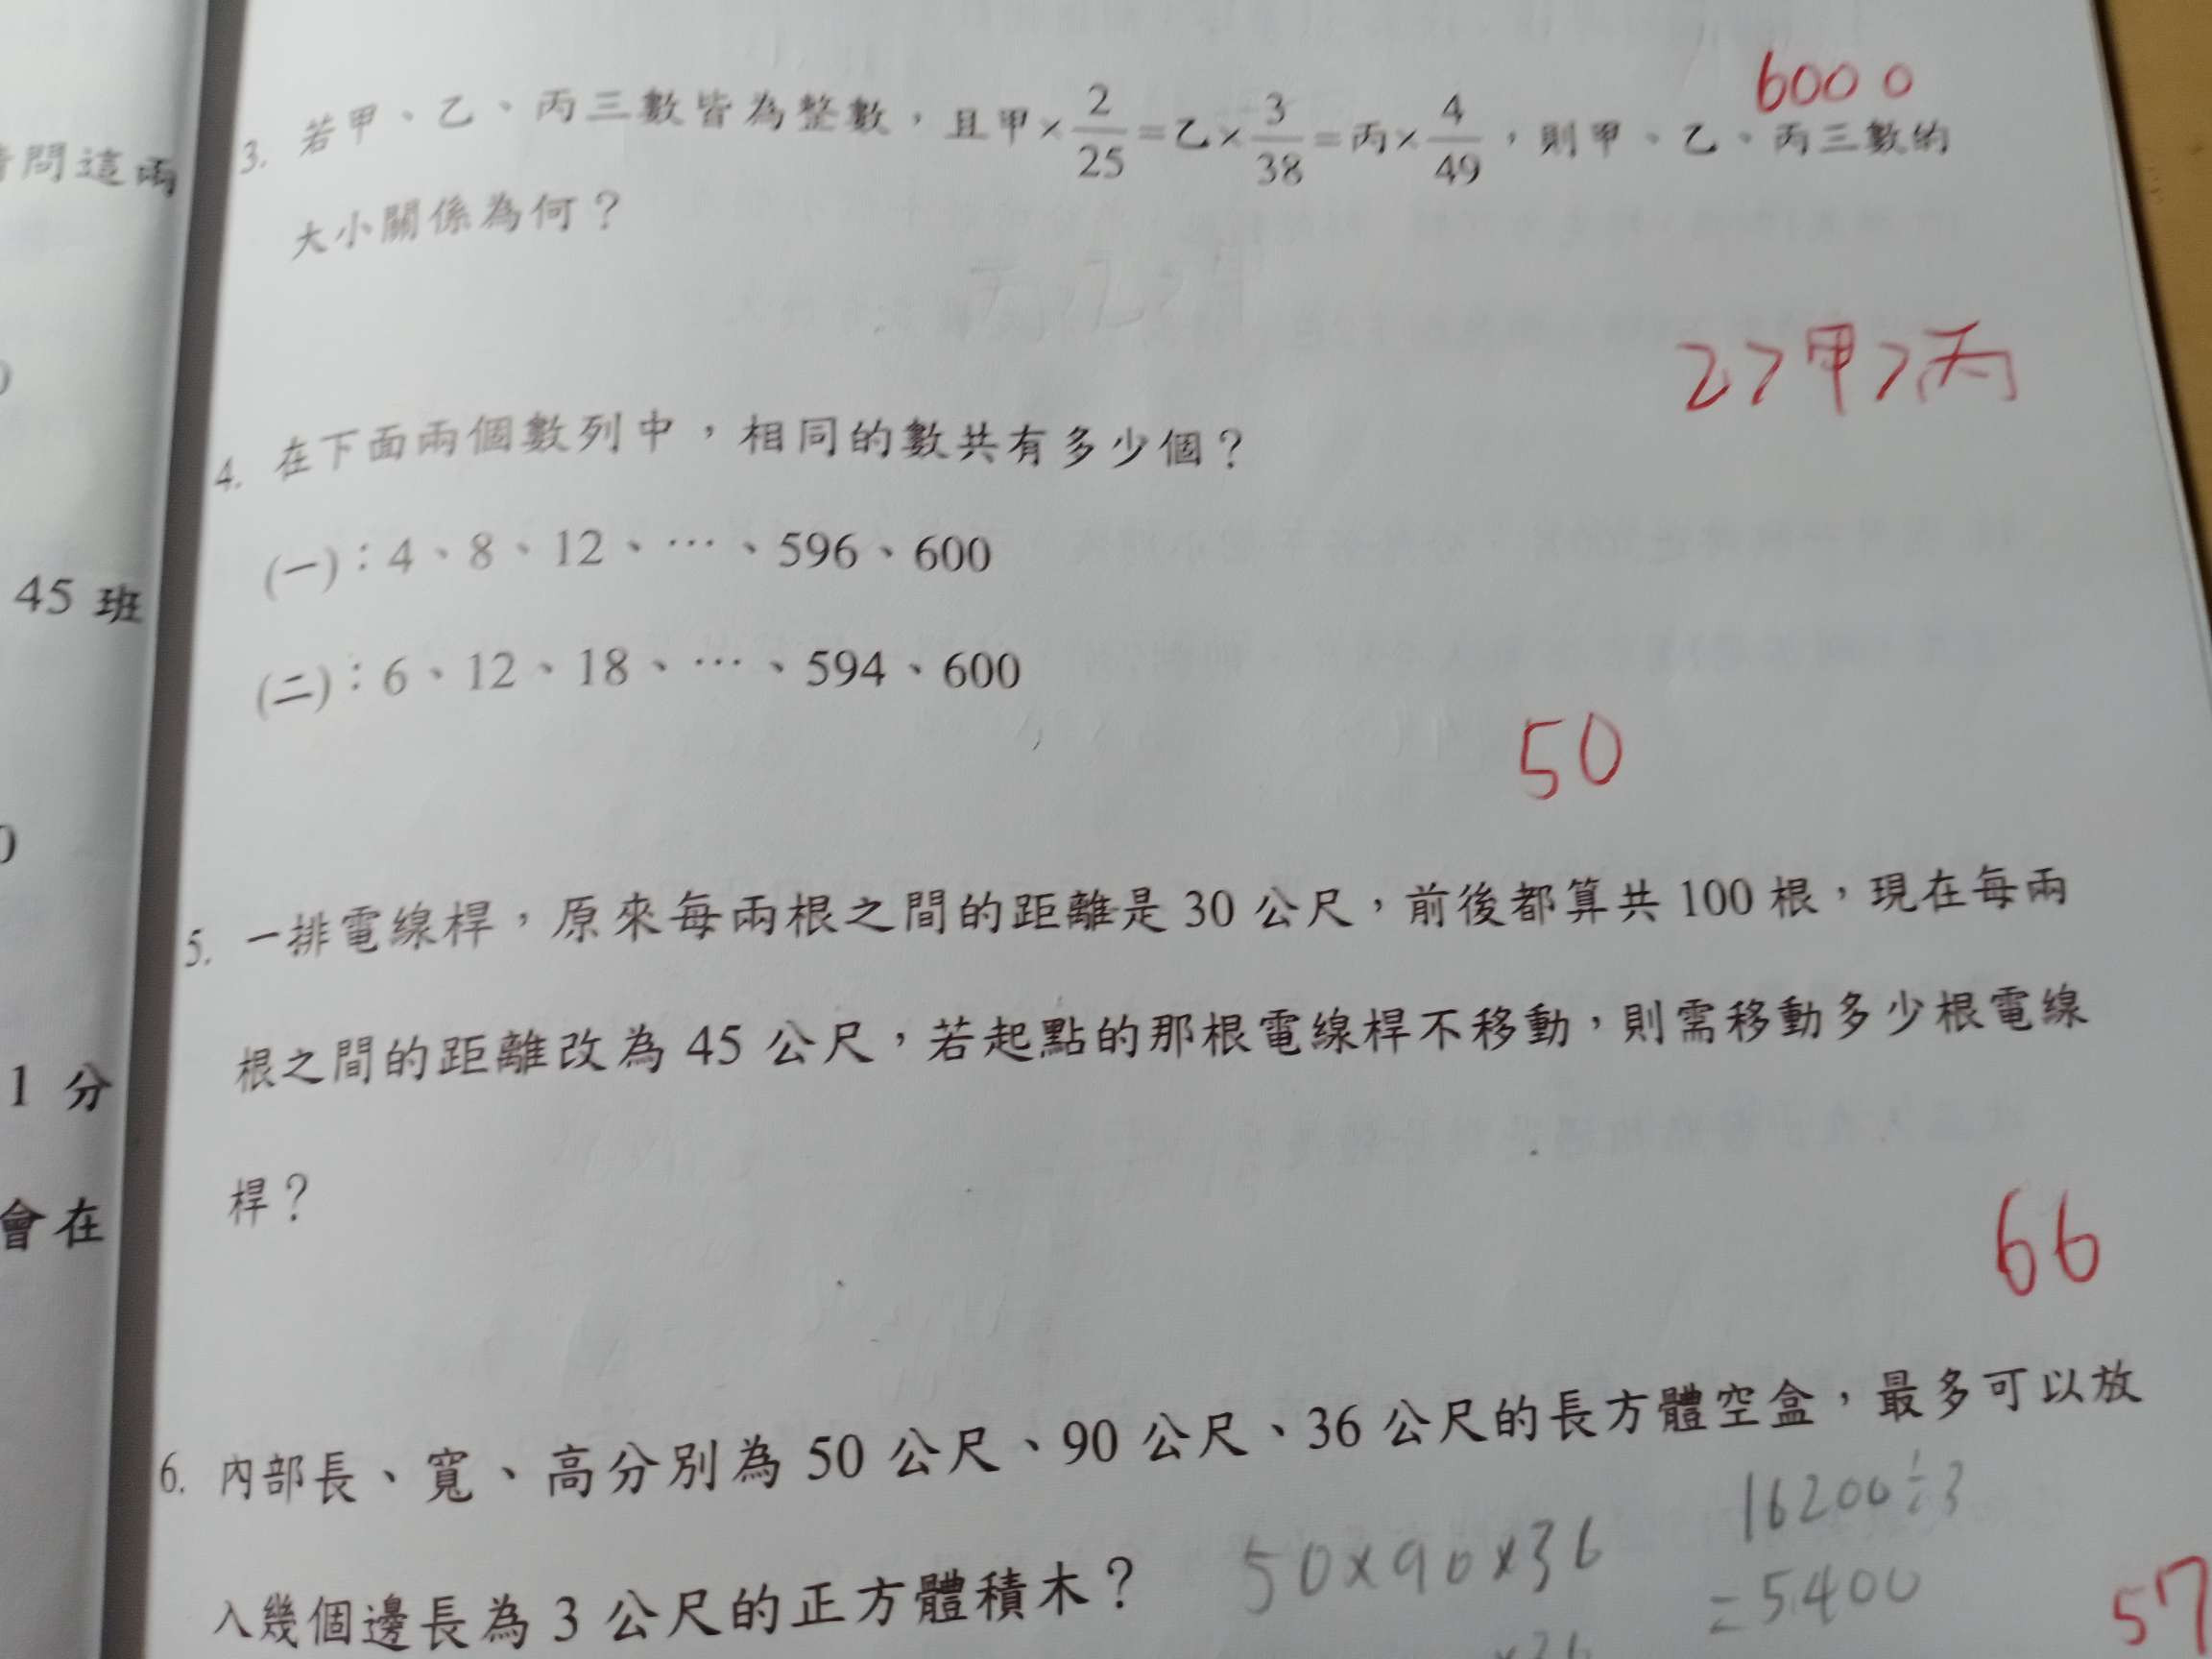 問這兩
45 班
1 分
會在
6000
3. 若甲、乙、丙三數皆為整數，且甲×2/25=乙×3/38=丙×4/49，則甲、乙、丙三數的
大小關係為何？
乙>甲>丙
4. 在下面兩個數列中，相同的數共有多少個？
(一)：4、8、12、…、596、600
(二)：6、12、18、…、594、600
50
5. 一排電線桿，原來每兩根之間的距離是 30 公尺，前後都算共 100 根，現在每兩
根之間的距離改為 45 公尺，若起點的那根電線桿不移動，則需移動多少根電線
桿？
66
6. 內部長、寬、高分別為 50 公尺、90 公尺、36 公尺的長方體空盒，最多可以放
入幾個邊長為 3 公尺的正方體積木？
50×90×36
16200÷3
=5400
57